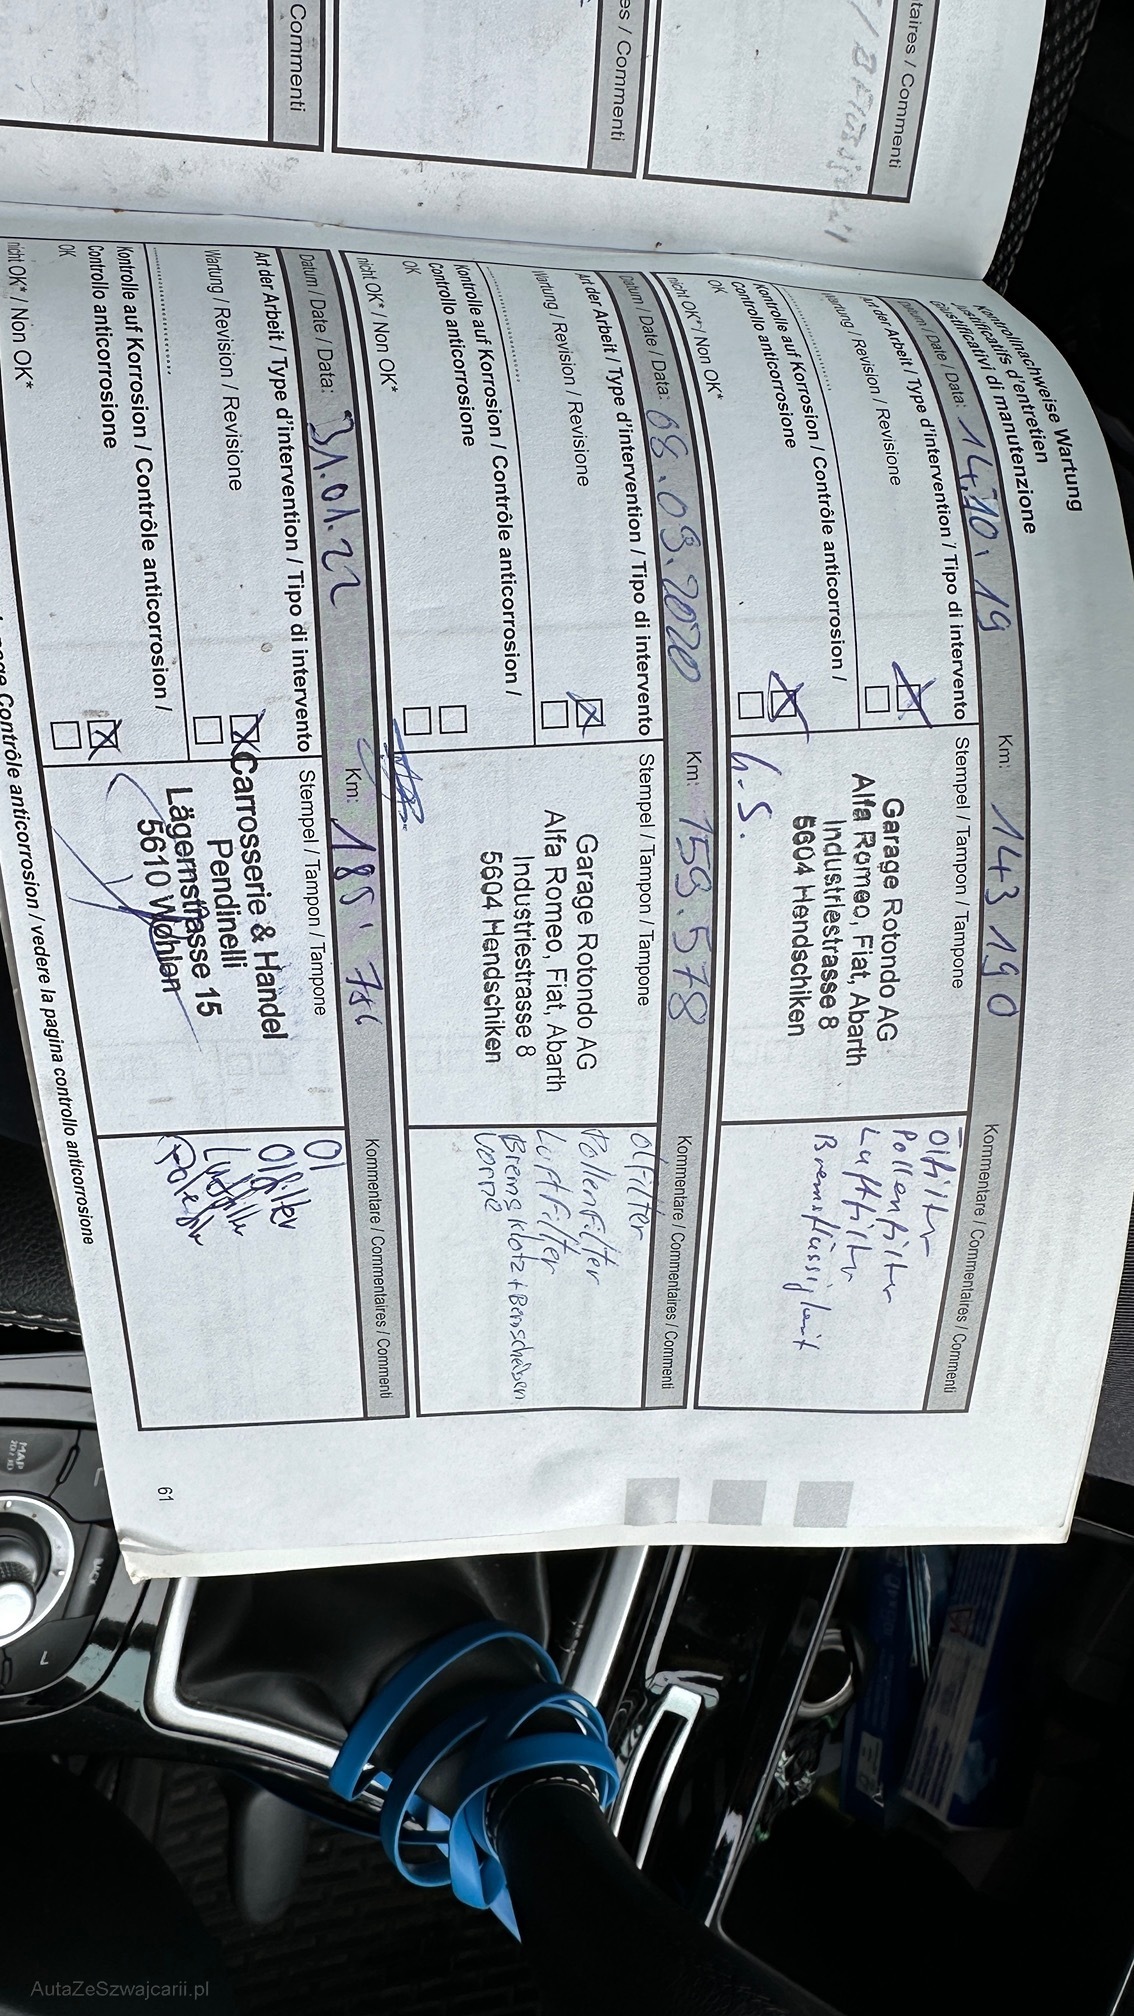 Commenti
es / Commenti
taires / Commenti
Kontrollnachweise Wartung
Justificatifs d'entretien
Giustificativi di manutenzione
Datum / Date / Data: 14.10.19
Km: 143 190
Kommentare / Commentaires / Commenti
Art der Arbeit / Type d'intervention / Tipo di intervento
Stempel / Tampon / Tampone
Wartung / Revision / Revisione
Kontrolle auf Korrosion / Contrôle anticorrosion /
Controllo anticorrosione
OK
nicht OK* / Non OK*
Garage Rotondo AG
Alfa Romeo, Fiat, Abarth
Industriestrasse 8
5604 Hendschiken
Ölfilter
Pollenfilter
Luftfilter
Bremsflüssigkeit
Datum / Date / Data: 08.09.2020
Km: 159.578
Kommentare / Commentaires / Commenti
Art der Arbeit / Type d'intervention / Tipo di intervento
Stempel / Tampon / Tampone
Wartung / Revision / Revisione
Kontrolle auf Korrosion / Contrôle anticorrosion /
Controllo anticorrosione
OK
nicht OK* / Non OK*
Garage Rotondo AG
Alfa Romeo, Fiat, Abarth
Industriestrasse 8
5604 Hendschiken
Ölfilter
Pollenfilter
Luftfilter
Bremsklötz + Bemscheiben
Vorne
Datum / Date / Data: 31.01.22
Km: 185'
Kommentare / Commentaires / Commenti
Art der Arbeit / Type d'intervention / Tipo di intervento
Stempel / Tampon / Tampone
Wartung / Revision / Revisione
Kontrolle auf Korrosion / Contrôle anticorrosion /
Controllo anticorrosione
OK
nicht OK* / Non OK*
Carrosserie & Handel
Pendinelli
Lägernstrasse 15
5610 Wohlen
Öl
Ölfilter
Contrôle anticorrosion / vedere la pagina controllo anticorrosione
61
MAP
L
AutaZeSzwajcarii.pl